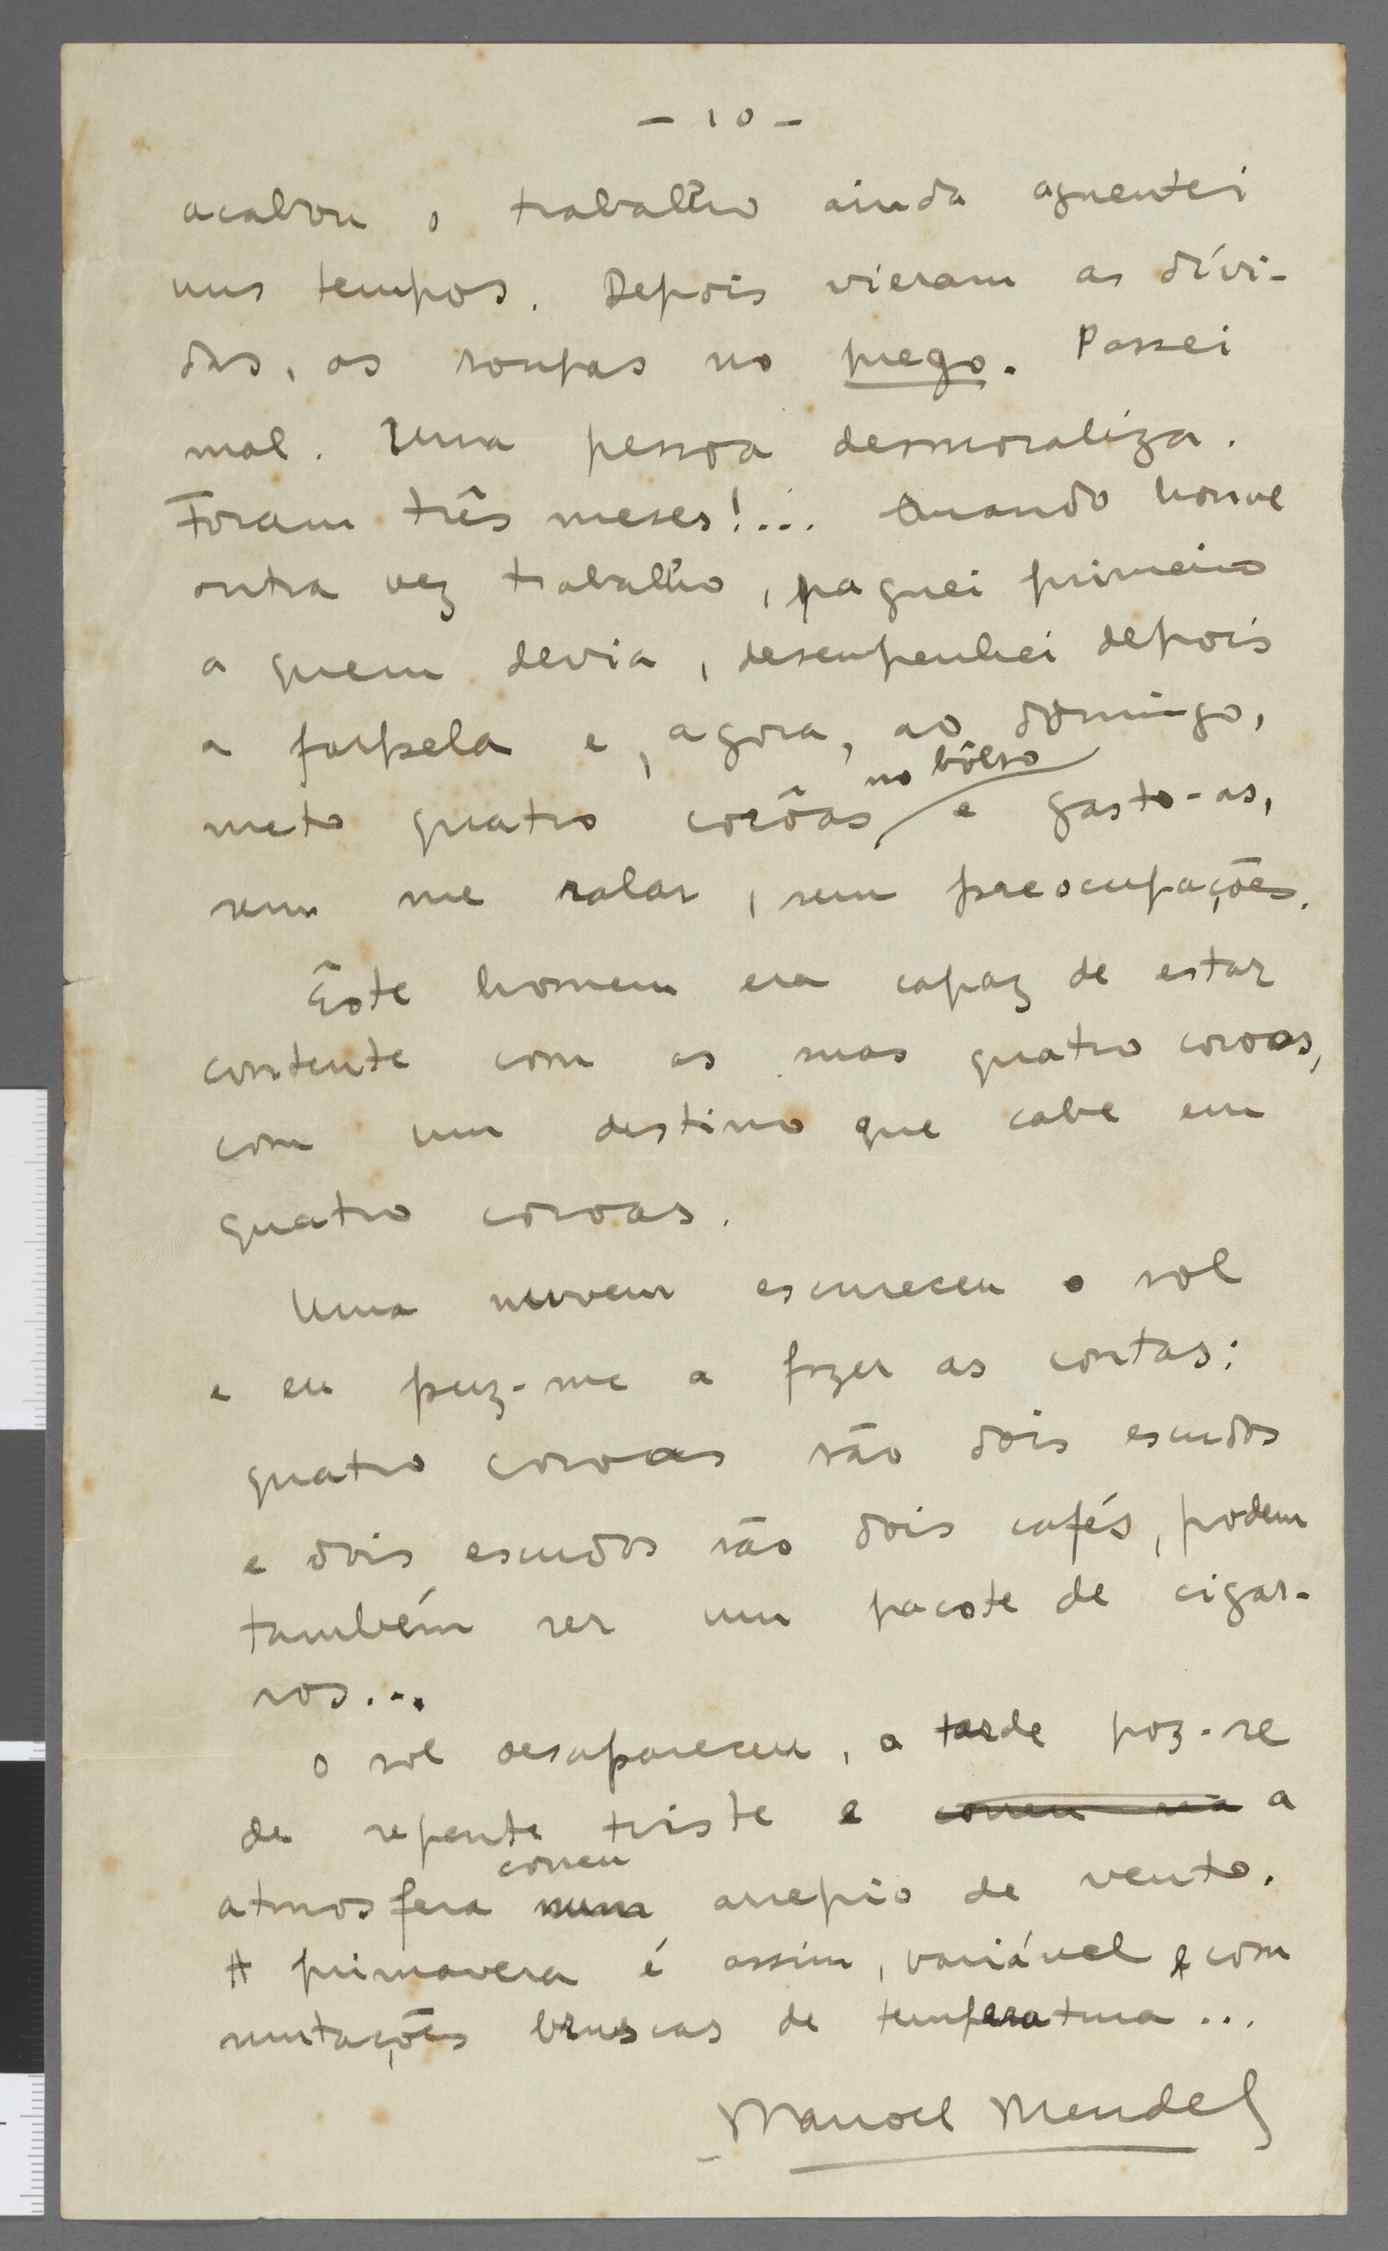 - 10 -
acabou o trabalho ainda aguentei
uns tempos. Depois vieram as dívi-
das, as roupas no prego. Passei
mal. Uma pessoa desmoraliza.
Foram três meses!... Quando houve
outra vez trabalho, paguei primeiro
a quem devia, desempenhei depois
a farpela e, agora, ao domingo,
no bôlso
meto quatro corôas, e gasto-as,
sem me ralar, sem preocupações.
Êste homem era capaz de estar
contente com as suas quatro coroas,
com um destino que cabe em
quatro coroas.
Uma nuvem escureceu o sol
e eu puz-me a fazer as contas:
quatro coroas são dois escudos
e dois escudos são dois cafés, podem
também ser um pacote de cigar-
ros...
O sol desapareceu, a tarde poz-se
de repente triste e correu na a
correu
atmosfera num arrepio de vento.
A primavera é assim, variável e com
mutações bruscas de temperatura...
Manoel Mendes